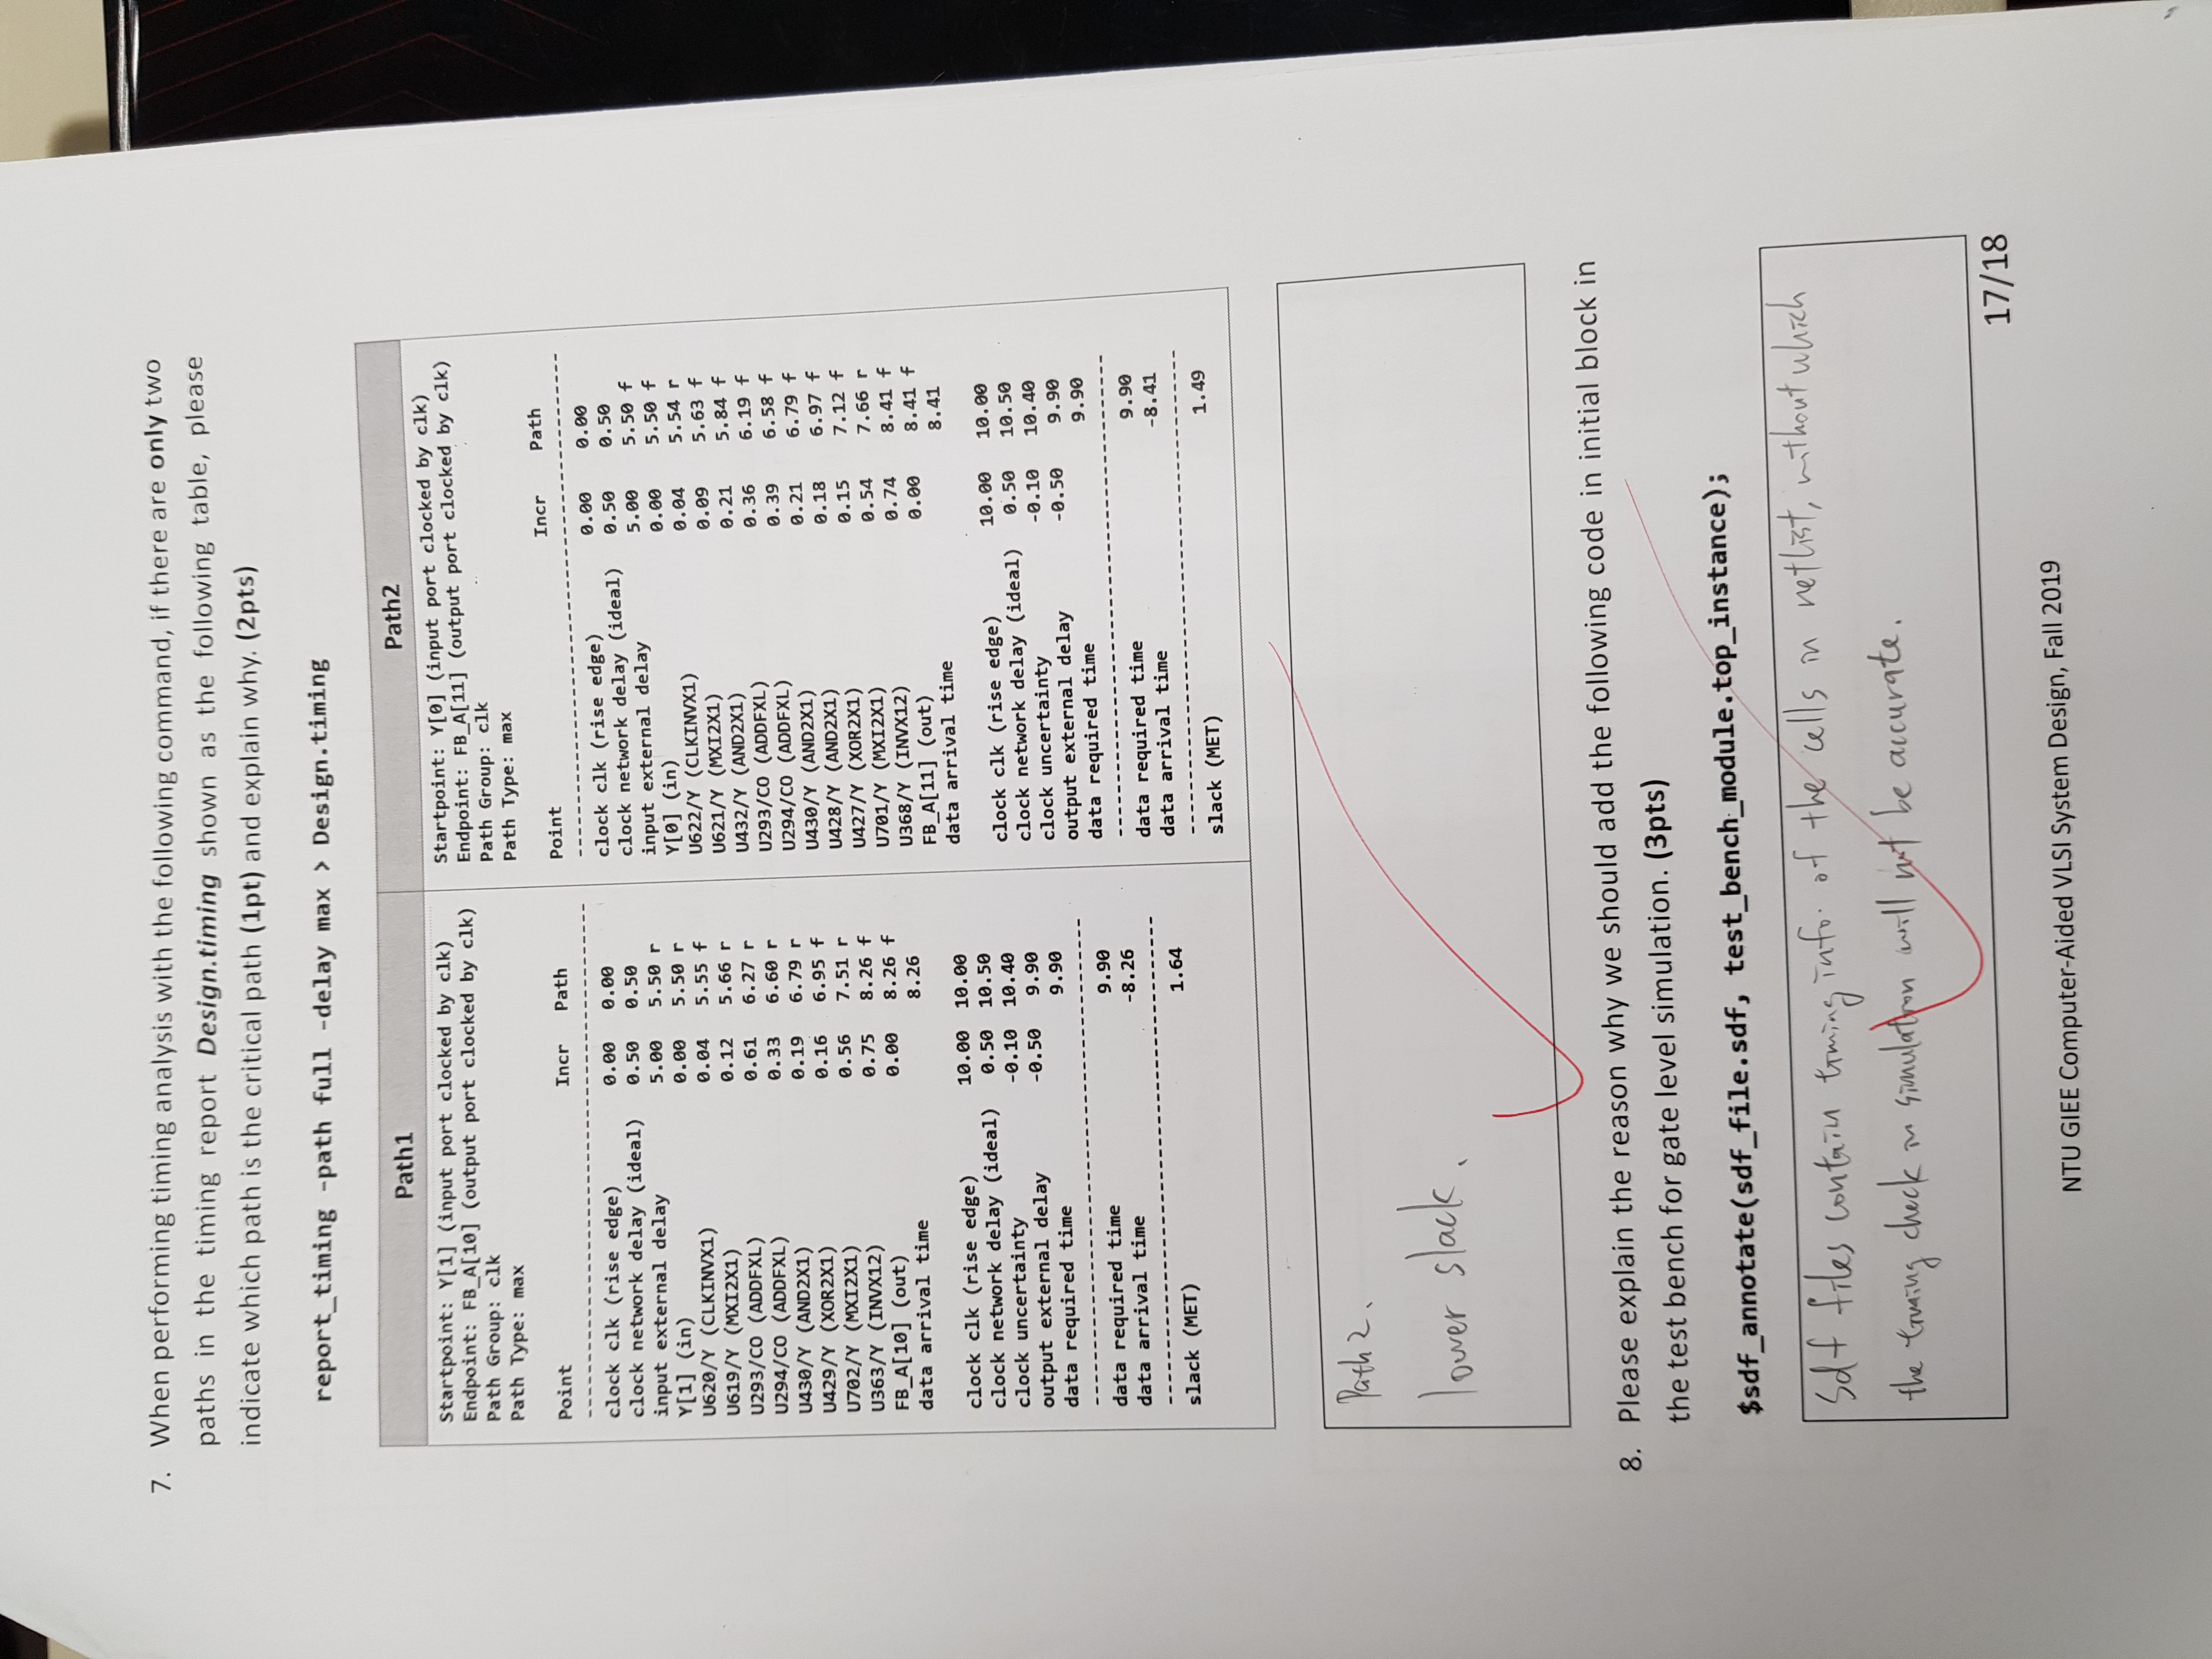 7. When performing timing analysis with the following command, if there are only two
paths in the timing report Design.timing shown as the following table, please
indicate which path is the critical path (1pt) and explain why. (2pts)
report_timing -path full -delay max > Design.timing
Path1
Startpoint: Y[1] (input port clocked by clk)
Endpoint: FB_A[10] (output port clocked by clk)
Path Group: clk
Path Type: max
Point Incr Path
----------------------------------------
clock clk (rise edge) 0.00 0.00
clock network delay (ideal) 0.50 0.50
input external delay 5.00 5.50 r
Y[1] (in) 0.00 5.50 r
U620/Y (CLKINVX1) 0.04 5.55 f
U619/Y (MXI2X1) 0.12 5.66 r
U293/CO (ADDFXL) 0.61 6.27 r
U294/CO (ADDFXL) 0.33 6.60 r
U430/Y (AND2X1) 0.19 6.79 r
U429/Y (XOR2X1) 0.16 6.95 f
U702/Y (MXI2X1) 0.56 7.51 r
U363/Y (INVX12) 0.75 8.26 f
FB_A[10] (out) 0.00 8.26 f
data arrival time 8.26
clock clk (rise edge) 10.00 10.00
clock network delay (ideal) 0.50 10.50
clock uncertainty -0.10 10.40
output external delay -0.50 9.90
data required time 9.90
----------------------------------------
data required time 9.90
data arrival time -8.26
----------------------------------------
slack (MET) 1.64
Path2
Startpoint: Y[0] (input port clocked by clk)
Endpoint: FB_A[11] (output port clocked by clk)
Path Group: clk
Path Type: max
Point Incr Path
----------------------------------------
clock clk (rise edge) 0.00 0.00
clock network delay (ideal) 0.50 0.50
input external delay 5.00 5.50 f
Y[0] (in) 0.00 5.50 f
U622/Y (CLKINVX1) 0.04 5.54 r
U621/Y (MXI2X1) 0.09 5.63 f
U432/Y (AND2X1) 0.21 5.84 f
U293/CO (ADDFXL) 0.36 6.19 f
U294/CO (ADDFXL) 0.39 6.58 f
U430/Y (AND2X1) 0.21 6.79 f
U428/Y (AND2X1) 0.18 6.97 f
U427/Y (XOR2X1) 0.15 7.12 f
U701/Y (MXI2X1) 0.54 7.66 r
U368/Y (INVX12) 0.74 8.41 f
FB_A[11] (out) 0.00 8.41 f
data arrival time 8.41
clock clk (rise edge) 10.00 10.00
clock network delay (ideal) 0.50 10.50
clock uncertainty -0.10 10.40
output external delay -0.50 9.90
data required time 9.90
----------------------------------------
data required time 9.90
data arrival time -8.41
----------------------------------------
slack (MET) 1.49
Path 2.
lower slack.
8. Please explain the reason why we should add the following code in initial block in
the test bench for gate level simulation. (3pts)
$sdf_annotate(sdf_file.sdf, test_bench_module.top_instance);
Sdf files contain timing info. of the cells in netlist, without which
the timing check in simulation will not be accurate.
17/18
NTU GIEE Computer-Aided VLSI System Design, Fall 2019